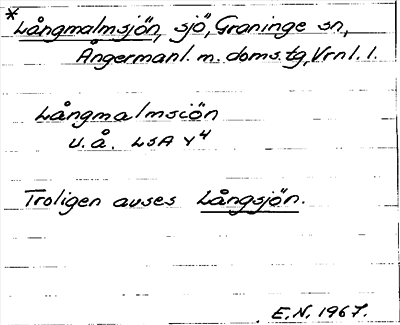 * Långmalmsjön, sjö, Graninge sn,
Ångermanl. m. doms.tg, Vrnl. l.
Långmalmsiön
u.å. LSA Y4
Troligen avses Långsjön.
E.N. 1967.